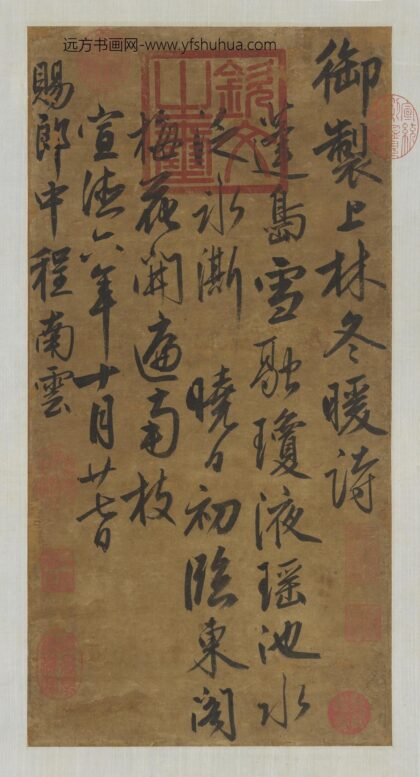 远方书画网-www.yfshuhua.com
御製上林冬暖詩
蓬島雪融瓊液瑤池水
冰澌 曉日初臨東閣
梅花開遍南枝
宣德六年十月廿七日
賜郎中程南雲
欽文之璽